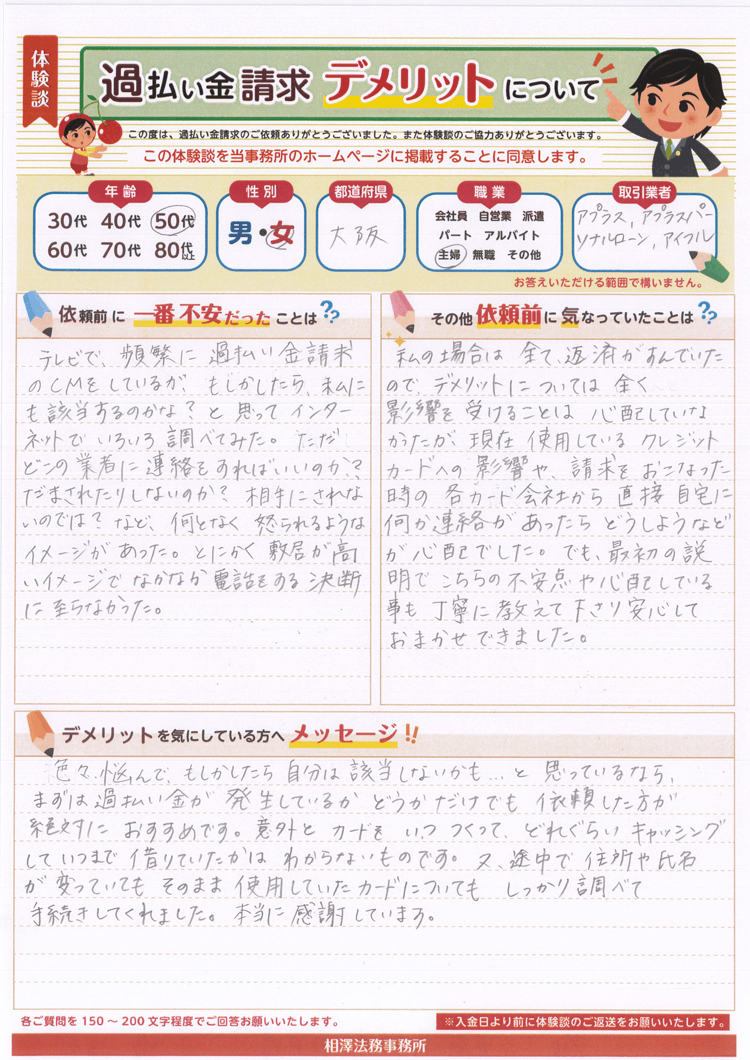 体験談
過払い金請求 デメリットについて
この度は、過払い金請求のご依頼ありがとうございました。また体験談のご協力ありがとうございます。
この体験談を当事務所のホームページに掲載することに同意します。
年齢
30代 40代 50代
60代 70代 80代以上
性別
男・女
都道府県
大阪
職業
会社員 自営業 派遣
パート アルバイト
主婦 無職 その他
取引業者
アプラス, アプラスパー
ソナルローン, アイフル
お答えいただける範囲で構いません。
依頼前に 一番不安だった ことは??
テレビで、頻繁に 過払い金請求
のCMをしているが、もしかしたら、私に
も該当するのかな?と思って インター
ネットで いろいろ調べてみた。ただ
どこの業者に連絡をすればいいのか?
だまされたりしないのか? 相手にされな
いのでは? など、何となく 怒られるような
イメージがあった。とにかく 敷居が高
いイメージで なかなか電話をする決断
に至らなかった。
その他 依頼前に気なっていたことは??
私の場合は 全て、返済がすんでいた
ので、デメリットについては 全く
影響を受けることは 心配していな
かったが、現在 使用している クレジット
カードへの 影響や、請求をおこなった
時の 各カード会社から 直接自宅に
何か連絡が あったら どうしようなど
が 心配でした。でも、最初の説
明で こちらの 不安点や心配している
事も 丁寧に教えて下さり 安心して
おまかせできました。
デメリットを気にしている方へ メッセージ!!
色々、悩んで、もしかしたら 自分は 該当しないかも…と 思っているなら、
まずは 過払い金が 発生しているか どうかだけでも 依頼した方が
絶対に おすすめです。意外と カードを いつ つくって、どれぐらい キャッシング
して いつまで 借りていたかは わからないものです。又、途中で 住所や氏名
が 変っていても そのまま 使用していたカードについても しっかり調べて
手続きしてくれました。本当に 感謝しています。
各ご質問を150〜200文字程度でご回答お願いいたします。
※入金日より前に体験談のご返送をお願いいたします。
相澤法務事務所